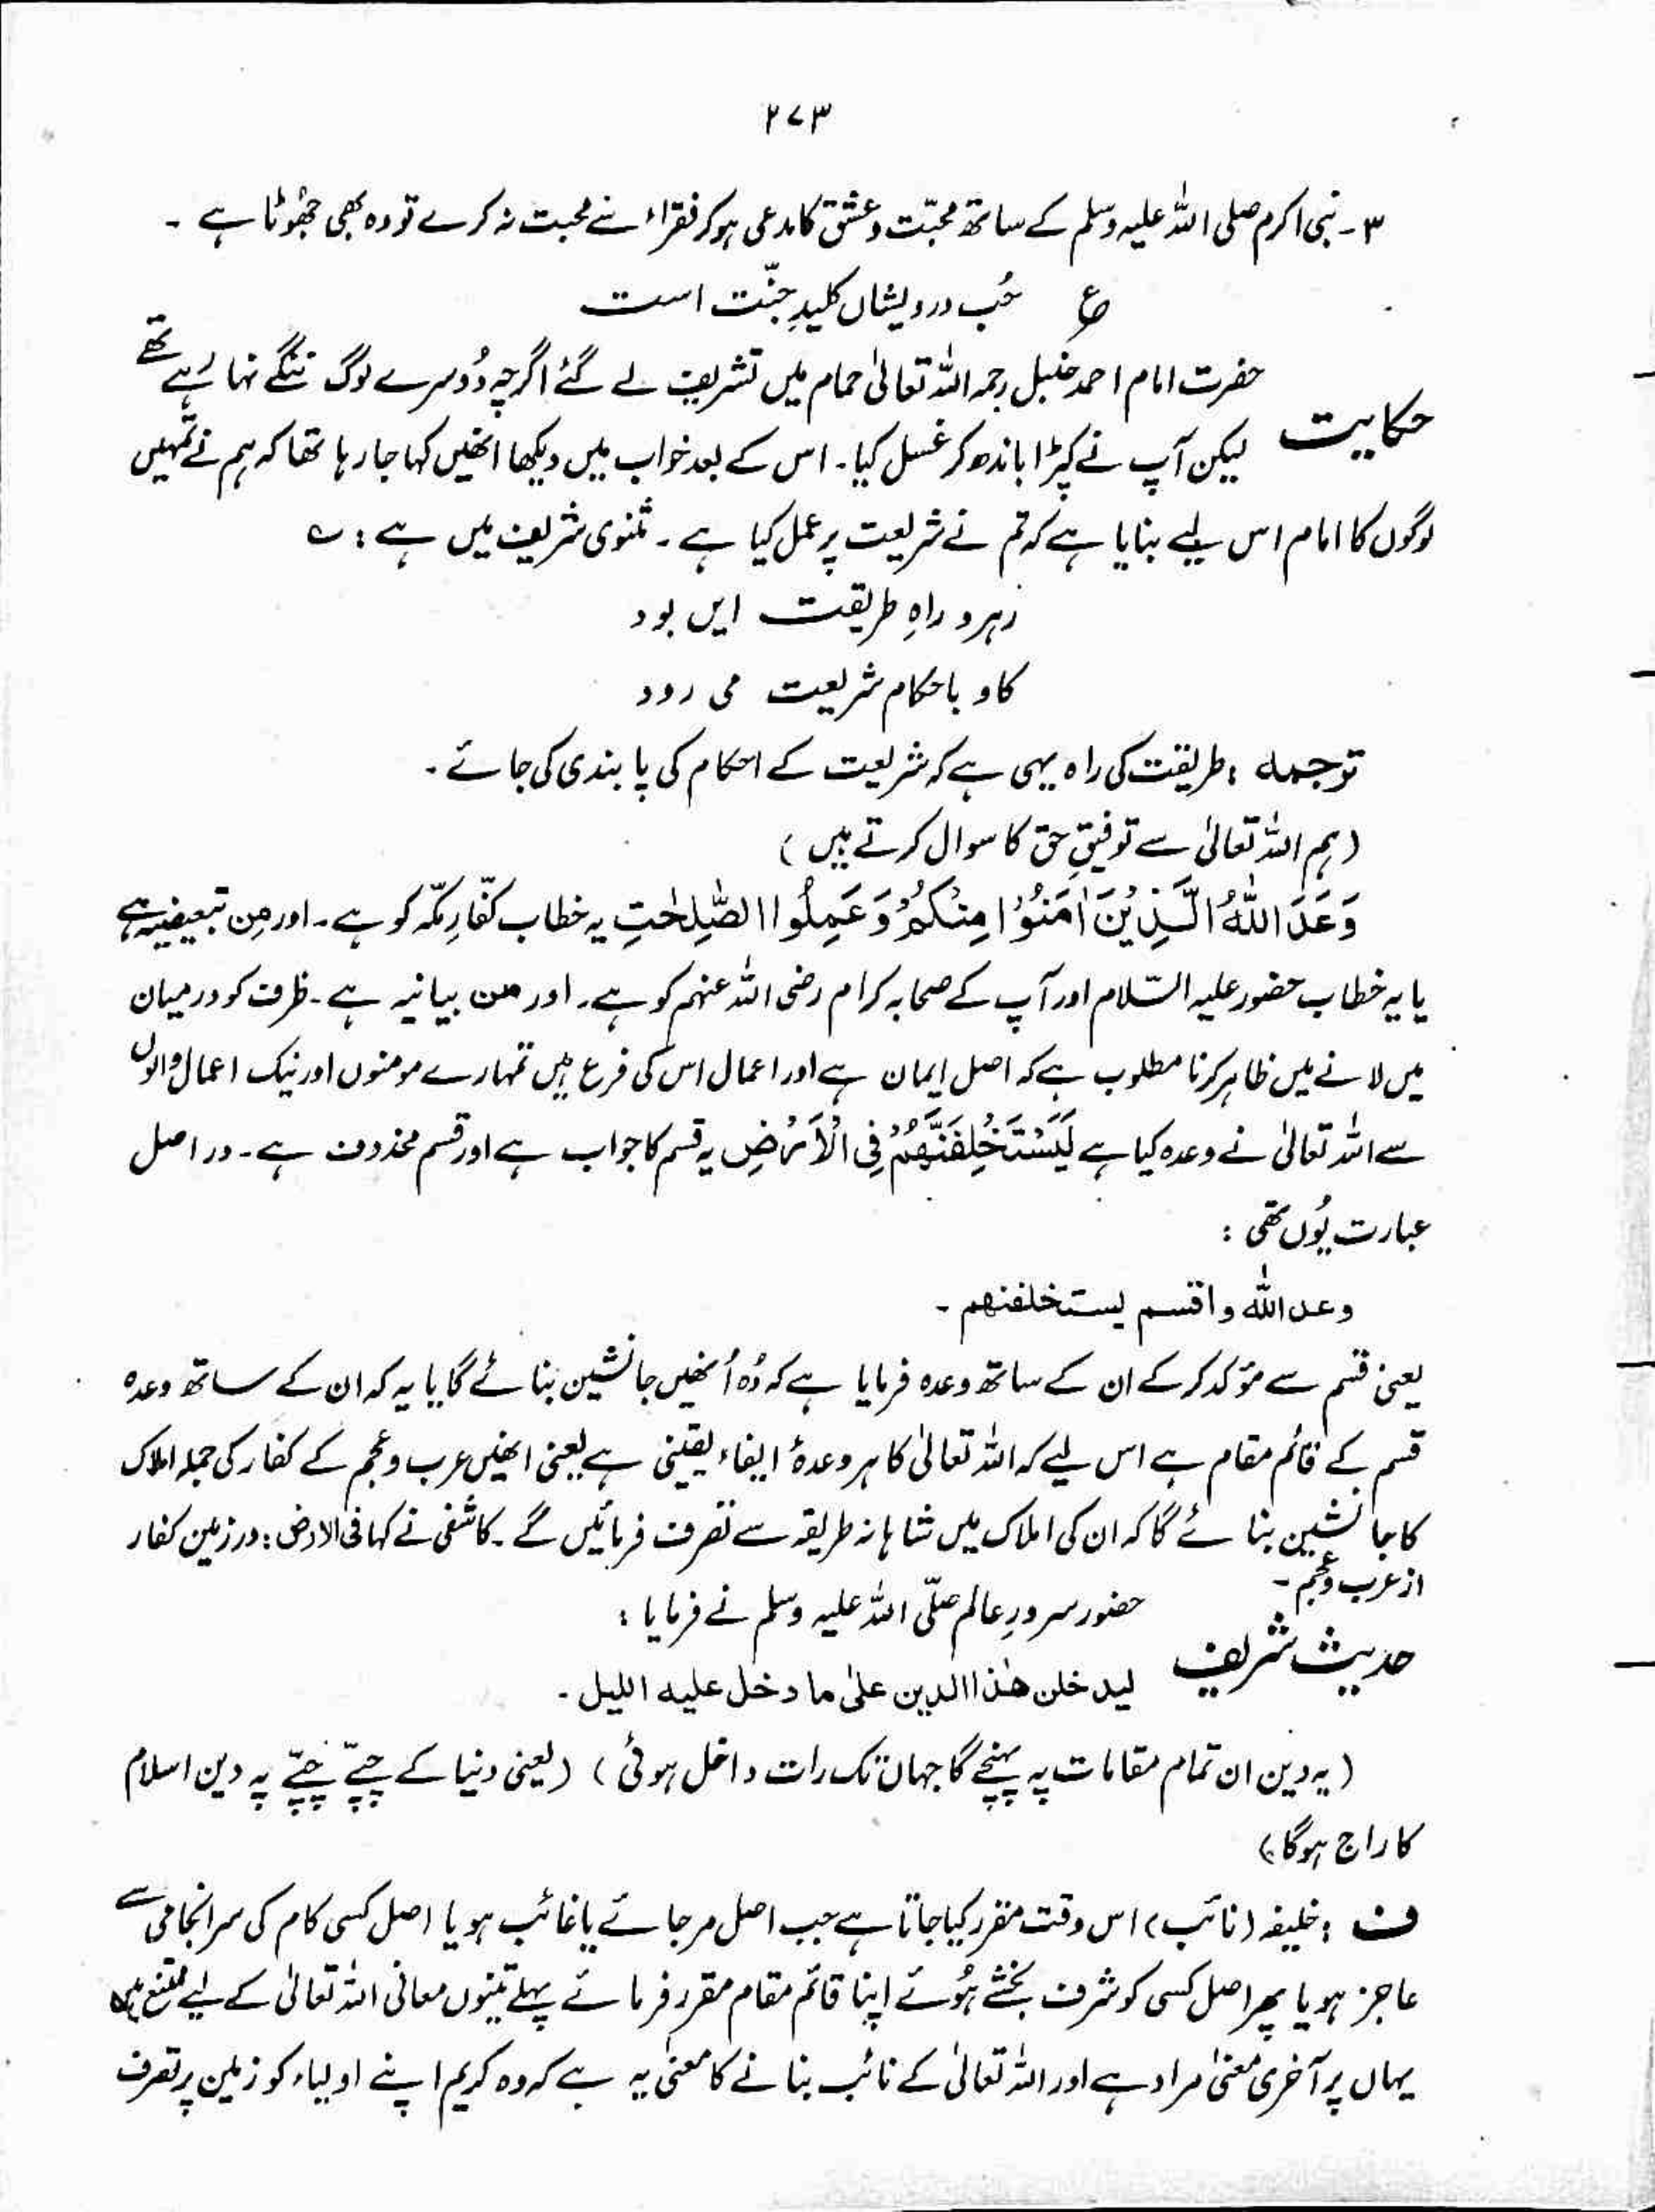 ۲۷۳
۳۔ نبی اکرم صلی اللہ علیہ وسلم کے ساتھ محبّت و عشق کا مدعی ہو کر فقراء سے محبت نہ کرے تو وہ بھی جھُوٹا ہے ۔
ع حُب درویشاں کلیدِ جنّت است
حضرت امام احمد حنبل رحمہ اللہ تعالیٰ حمام میں تشریف لے گئے اگرچہ دُوسرے لوگ ننگے نہا رہے تھے
حکایت لیکن آپ نے کپڑا باندھ کر غسل کیا ۔ اس کے بعد خواب میں دیکھا انھیں کہا جا رہا تھا کہ ہم نے تمہیں
لوگوں کا امام اس لیے بنایا ہے کہ تم نے شریعت پر عمل کیا ہے ۔ مثنوی شریف میں ہے : ؎
رہرو راہِ طریقت ایں بود
کاو باحکام شریعت می رود
ترجمہ : طریقت کی راہ یہی ہے کہ شریعت کے احکام کی پابندی کی جائے ۔
(ہم اللہ تعالیٰ سے توفیقِ حق کا سوال کرتے ہیں)
وَعَدَ اللّٰهُ الَّذِيْنَ اٰمَنُوْا مِنْكُمْ وَعَمِلُوا الصّٰلِحٰتِ یہ خطاب کفّارِ مکّہ کو ہے ۔ اور مِن تبعیضیہ ہے
یا یہ خطاب حضور علیہ السّلام اور آپ کے صحابہ کرام رضی اللہ عنہم کو ہے ۔ اور من بیانیہ ہے ۔ ظرف کو درمیان
میں لانے میں ظاہر کرنا مطلوب ہے کہ اصل ایمان ہے اور اعمال اس کی فرع ہیں تمہارے مومنوں اور نیک اعمال والوں
سے اللہ تعالیٰ نے وعدہ کیا ہے لَيَسْتَخْلِفَنَّهُمْ فِي الْاَرْضِ یہ قسم کا جواب ہے اور قسم محذوف ہے ۔ دراصل
عبارت یُوں تھی :
وعد اللّٰه و اقسم لیستخلفنهم ۔
یعنی قسم سے مؤکد کر کے ان کے ساتھ وعدہ فرمایا ہے کہ وُہ اُنھیں جانشین بنائے گا یا یہ کہ ان کے ساتھ وعدہ
قسم کے قائم مقام ہے اس لیے کہ اللہ تعالیٰ کا ہر وعدۂ ایفاء یقینی ہے یعنی انھیں عرب و عجم کے کفار کی جملہ املاک
کا جانشین بنائے گا کہ ان کی املاک میں شاہانہ طریقہ سے تصرف فرمائیں گے ۔ کاشفی نے کہا فی الارض : در زمین کفار
از عرب و عجم ۔
حضور سرورِ عالم صلّی اللہ علیہ وسلم نے فرمایا :
حدیث شریف لیدخلن هٰذا الدین علیٰ ما دخل علیه اللیل ۔
(یہ دین ان تمام مقامات پہ پہنچے گا جہاں تک رات داخل ہوئی) (یعنی دنیا کے چپّے چپّے پہ دین اسلام
کا راج ہوگا)
ف : خلیفہ (نائب) اس وقت مقرر کیا جاتا ہے جب اصل مر جائے یا غائب ہو یا اصل کسی کام کی سرانجامی سے
عاجز ہو یا پھر اصل کسی کو شرف بخشتے ہُوئے اپنا قائم مقام مقرر فرمائے پہلے تینوں معانی اللہ تعالیٰ کے لیے ممتنع ہیں
یہاں پر آخری معنیٰ مراد ہے اور اللہ تعالیٰ کے نائب بنانے کا معنیٰ یہ ہے کہ وہ کریم اپنے اولیاء کو زمین پر تصرف